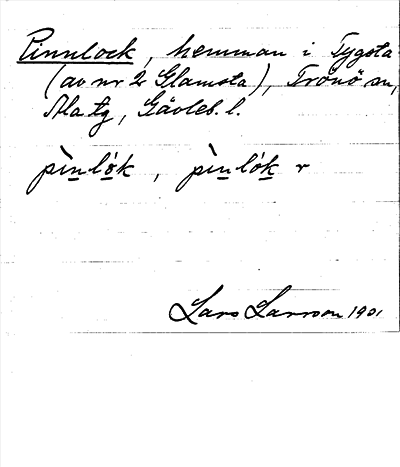 Pinnlock, hemman i Tygsta
(av nr 2 Glamsta), Trönö sn,
Ala tg, Gävleb. l.
pìnlók, pìnlók r
Lars Larsson 1901